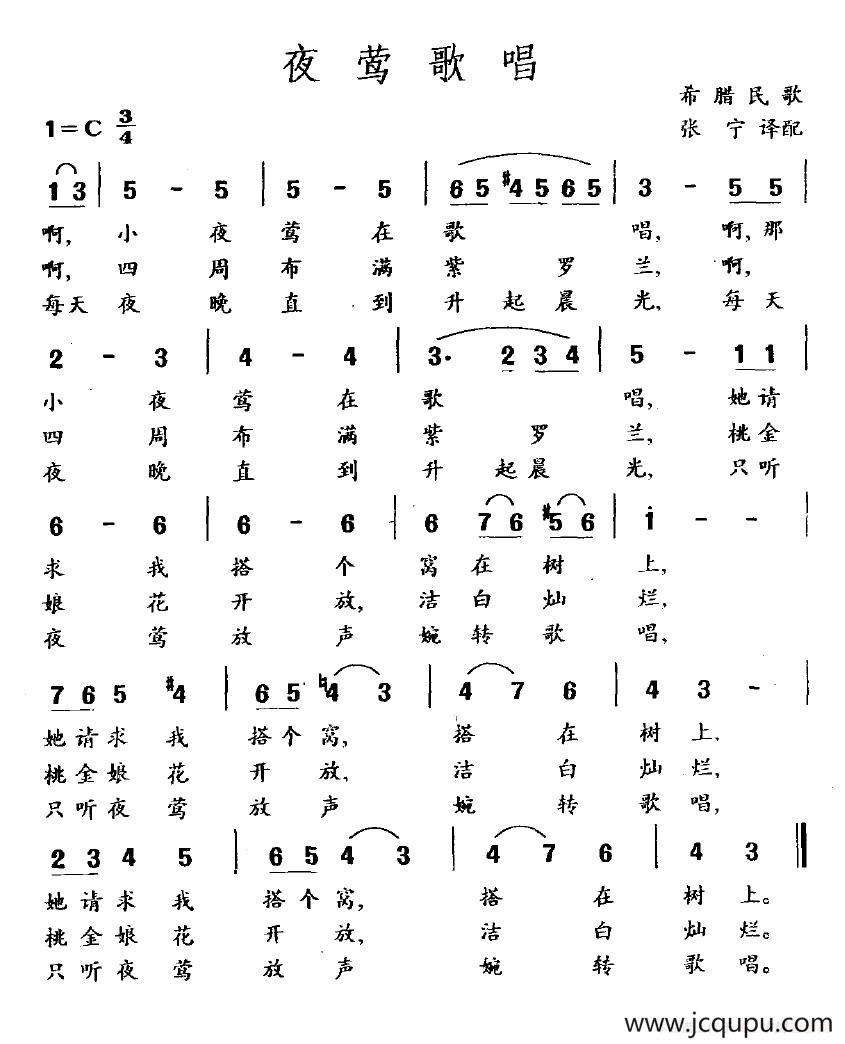 夜莺歌唱
希腊民歌
1=C 3/4
张宁译配
1 3 | 5 - 5 | 5 - 5 | 6 5 #4 5 6 5 | 3 - 5 5 |
啊, 小夜莺在歌唱, 啊, 那
啊, 四周布满紫罗兰, 啊,
每天夜晚直到升起晨光, 每天
2 - 3 | 4 - 4 | 3. 2 3 4 | 5 - 1 1 |
小夜莺在歌唱, 她请
四周布满紫罗兰, 桃金
夜晚直到升起晨光, 只听
6 - 6 | 6 - 6 | 6 7 6 #5 6 | i - - |
求我搭个窝在树上,
娘花开放, 洁白灿烂,
夜莺放声婉转歌唱,
7 6 5 #4 | 6 5 ♮4 3 | 4 7 6 | 4 3 - |
她请求我搭个窝, 搭在树上,
桃金娘花开放, 洁白灿烂,
只听夜莺放声婉转歌唱,
2 3 4 5 | 6 5 4 3 | 4 7 6 | 4 3 ‖
她请求我搭个窝, 搭在树上。
桃金娘花开放, 洁白灿烂。
只听夜莺放声婉转歌唱。
www.jcqupu.com